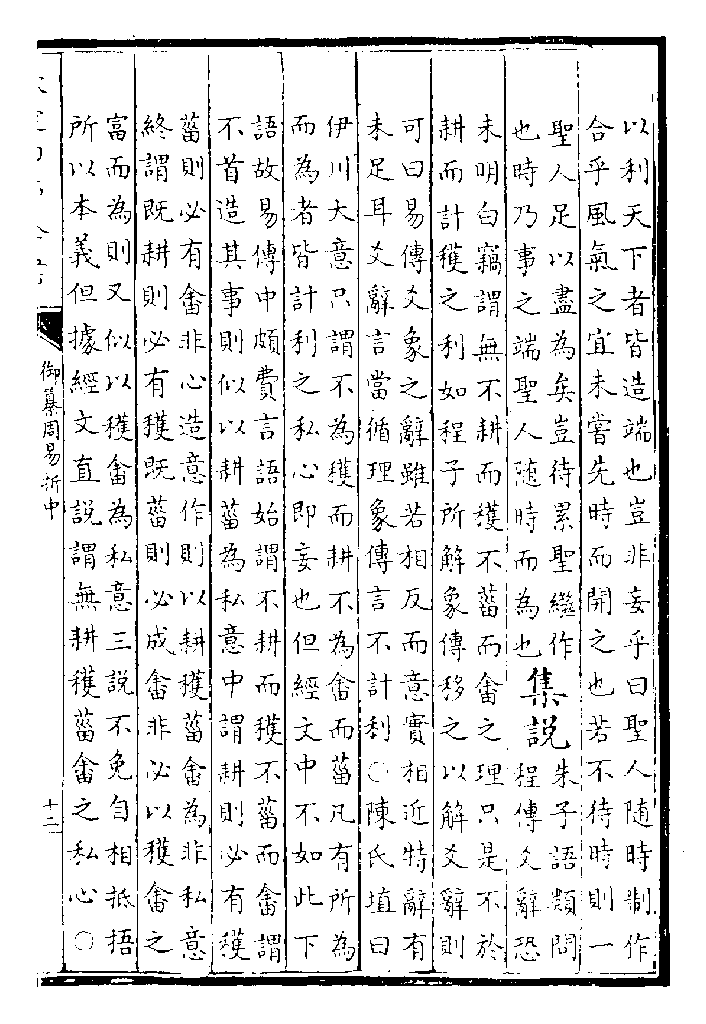 以利天下者皆造端也豈非妄乎曰聖人隨時制作
合乎風氣之宜未嘗先時而開之也若不待時則一
聖人足以盡為矣豈待累聖繼作
也時乃事之端聖人隨時而為也
集說
朱子語類問
程傳爻辭恐
未明白竊謂無不耕而穫不菑而畬之理只是不於
耕而計穫之利如程子所解象傳移之以解爻辭則
可曰易傳爻象之辭雖若相反而意實相近特辭有
未足耳爻辭言當循理象傳言不計利○陳氏埴曰
伊川大意只謂不為穫而耕不為畬而菑凡有所為
而為者皆計利之私心即妄也但經文中不如此下
語故易傳中頗費言語始謂不耕而穫不菑而畬謂
不首造其事則似以耕菑為私意中謂耕則必有穫
菑則必有畬非心造意作則以耕穫菑畬為非私意
終謂既耕則必有穫既菑則必成畬非必以穫畬之
富而為則又似以穫畬為私意三說不免自相抵捂
所以本義但據經文直說謂無耕穫菑畬之私心○
御纂周易折中
十二